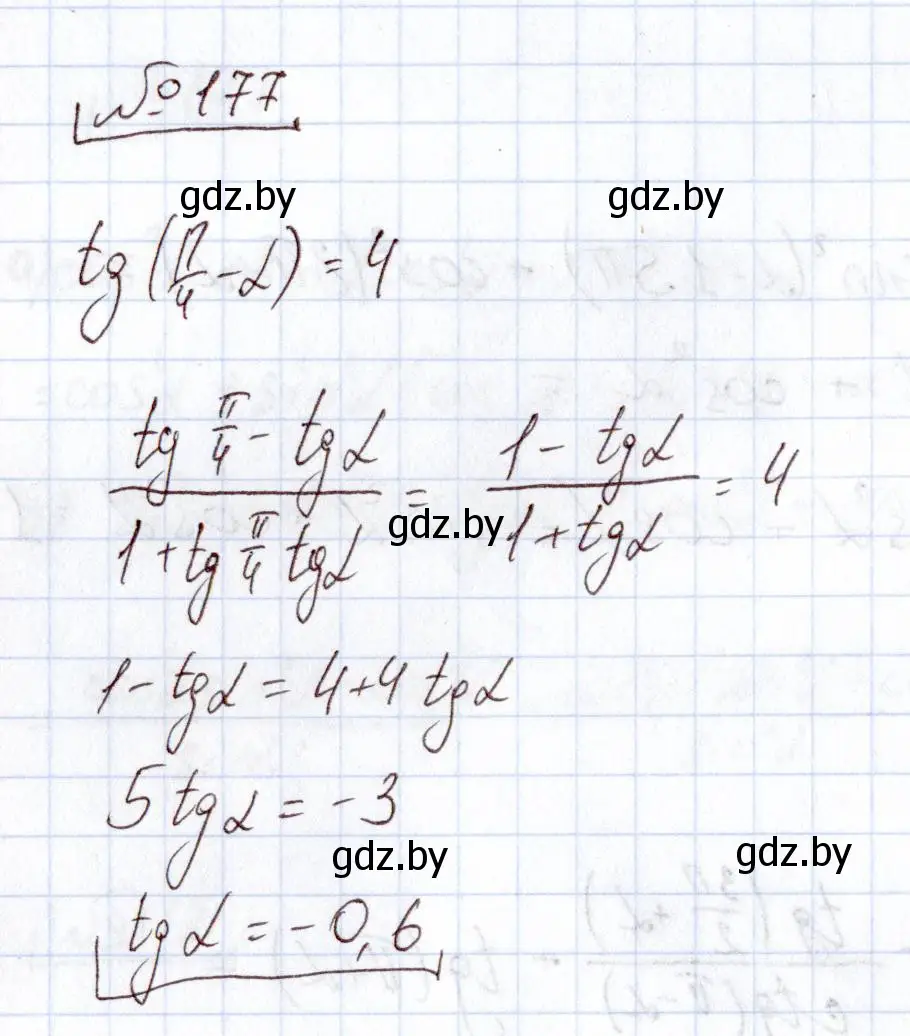 №177
gdz.by gdz.by
tg(π/4 - α) = 4
(tg π/4 - tgα)/(1 + tg π/4 tgα) = (1 - tgα)/(1 + tgα) = 4
gdz.by
1 - tgα = 4 + 4 tgα
5 tgα = -3
gdz.by gdz.by
tgα = -0,6